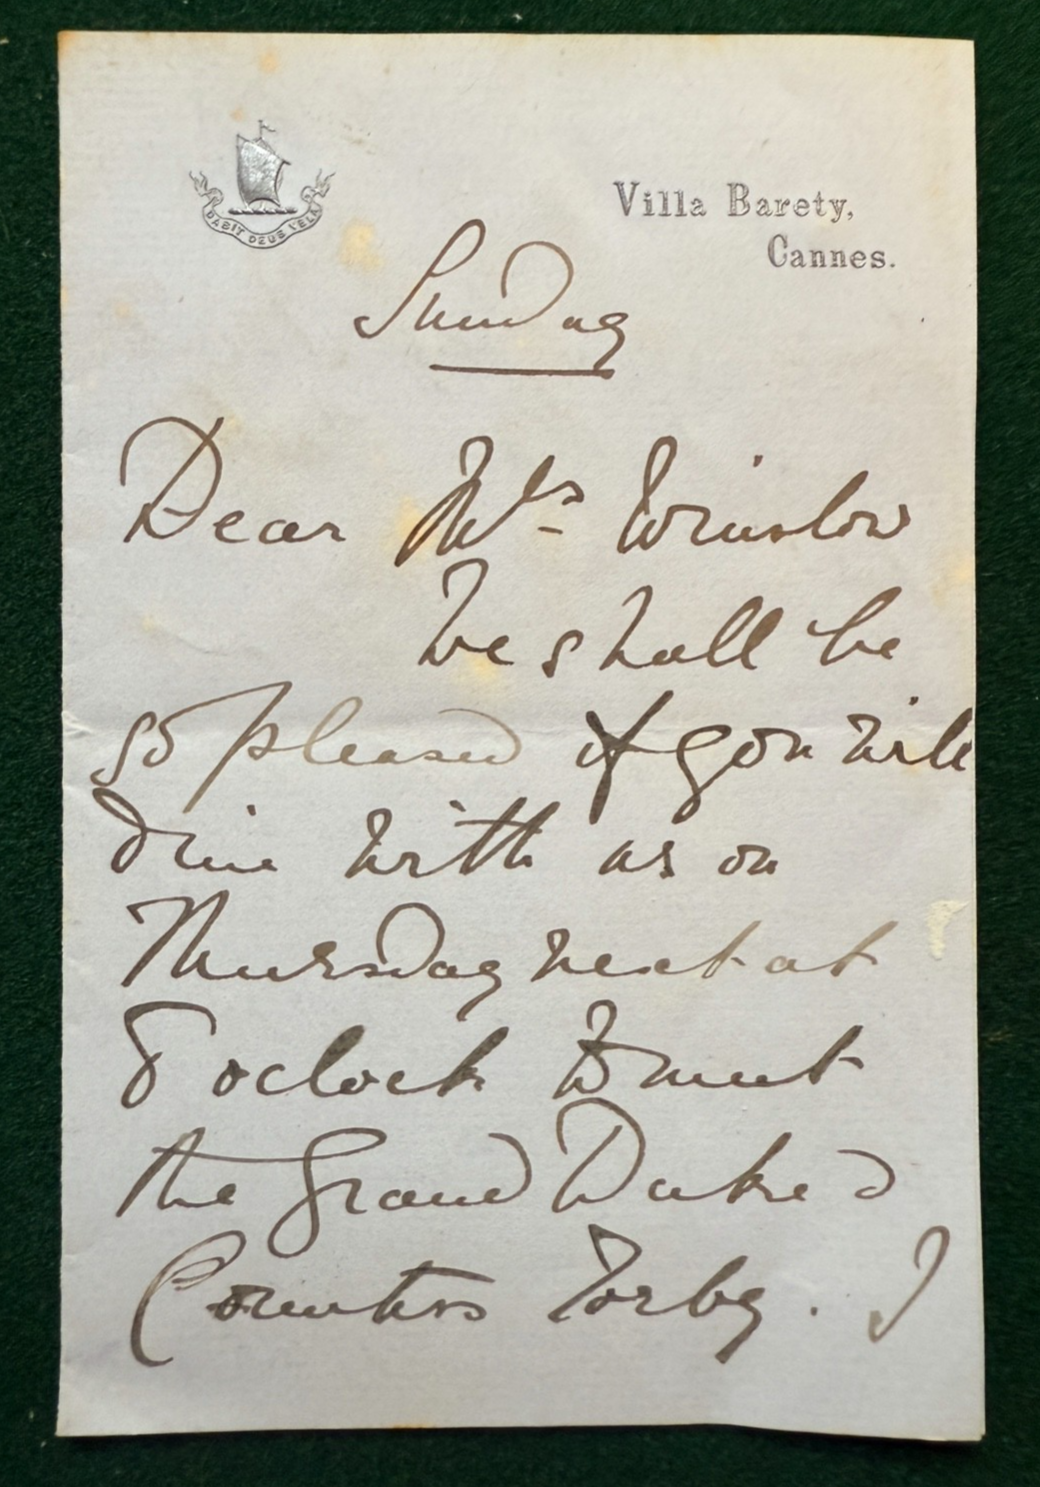 DABIT DEUS VELA
Villa Barety,
Cannes.
Sunday
Dear Mrs Winslow
We shall be
so pleased if you will
dine with us on
Thursday next at
8 oclock to meet
the Grand Duke &
Countess Torby. I